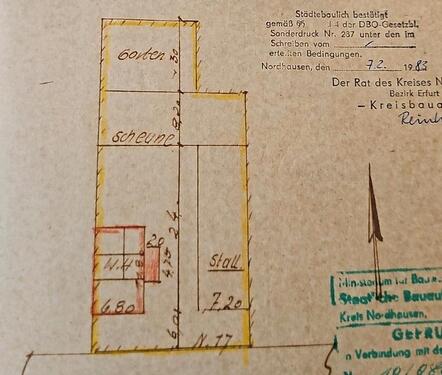 Städtebaulich bestätigt
gemäß §§ 14 der DBO-Gesetzbl.
Sonderdruck Nr. 287 unter den im
Schreiben vom
erteilten Bedingungen.
Nordhausen, den 7.2. 1983
Der Rat des Kreises N
Bezirk Erfurt
– Kreisbaua
Garten
Scheune
W.H
20
4,75
Stall
6.80
7.20
N. 17
Ministerium für Bau
Staatliche Bauau
Kreis Nordhausen
GEPRÜ
n Verbindung mit de